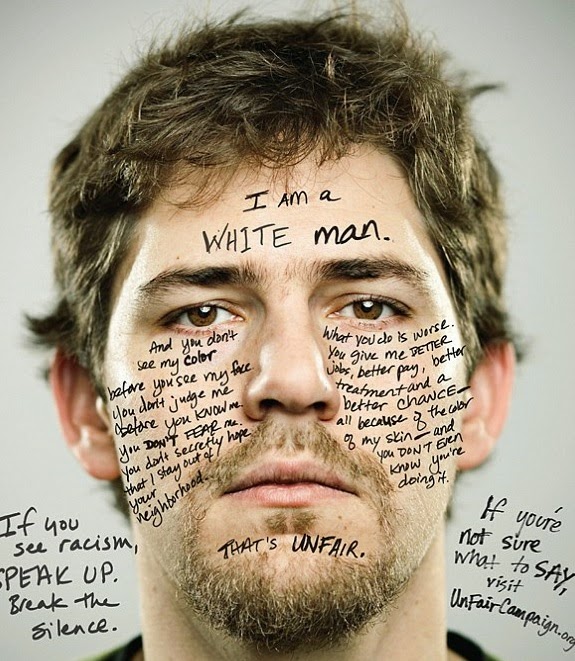 I AM a
WHITE man.
And you don't
see my color
before you see my face
you don't judge me
before you KNOW me.
you DON'T FEAR me.
you don't secretly hope
that I stay out of
your
neighborhood.
What you do is worse.
you give me BETTER
jobs, better pay, better
treatment and a
better CHANCE—
all because of the color
of my skin—and
you DON'T EVEN
know you're
doing it.
THAT'S UNFAIR.
If you
see racism,
SPEAK UP.
Break the
silence.
If you're
not sure
what to SAY,
visit
UnFairCampaign.org